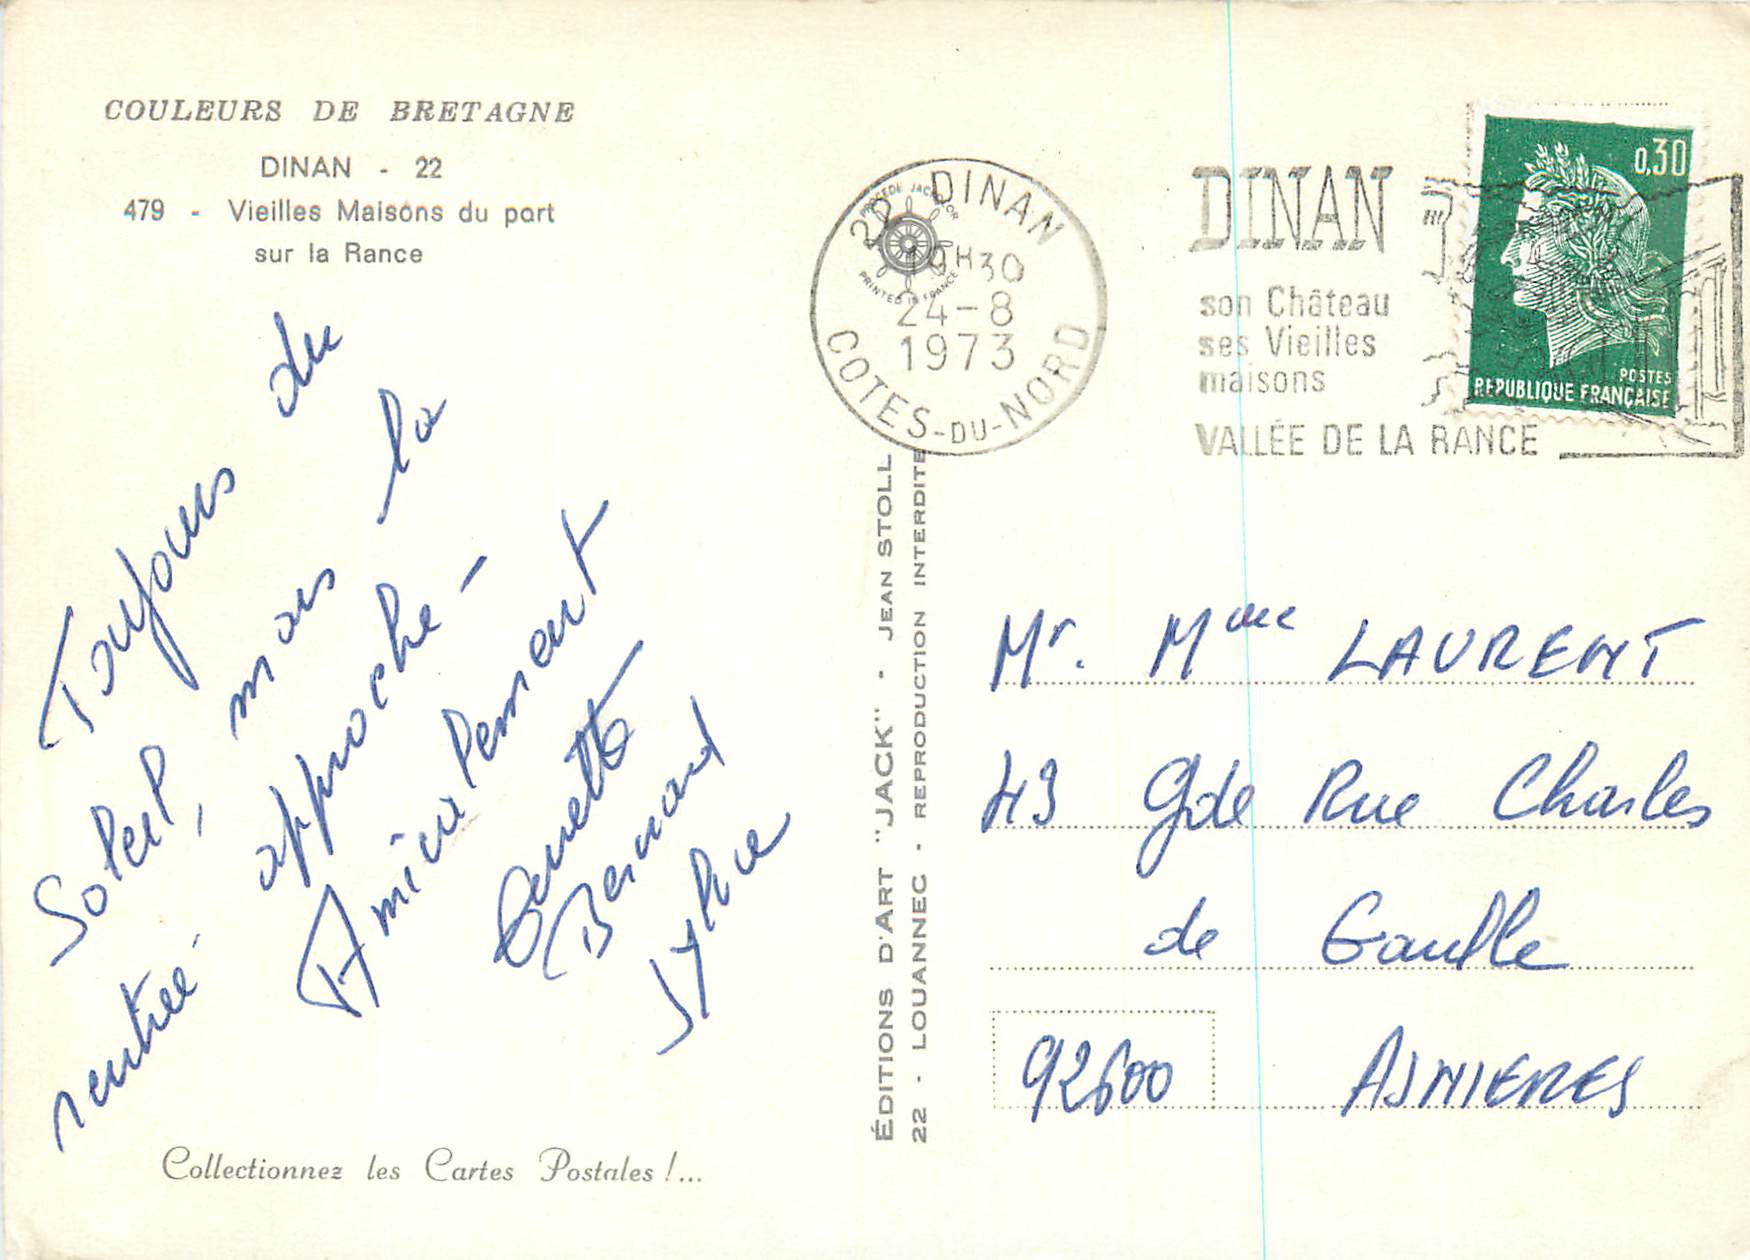 COULEURS DE BRETAGNE
DINAN - 22
479 - Vieilles Maisons du port
sur la Rance
Toujours du
Soleil, mais la
rentrée approche -
Amicalement
Bernard
Sylvie
Collectionnez les Cartes Postales !...
ÉDITIONS D'ART "JACK" - JEAN STOLL
22 - LOUANNEC - REPRODUCTION INTERDITE
PROCÉDÉ JACKCOLOR
PRINTED IN FRANCE
22 DINAN
19H30
24-8
1973
COTES-DU-NORD
DINAN
son Château
ses Vieilles
maisons
VALLÉE DE LA RANCE
0,30
POSTES
REPUBLIQUE FRANÇAISE
Mr. Mme LAURENT
43 Gde Rue Charles
de Gaulle
92600 ASNIERES